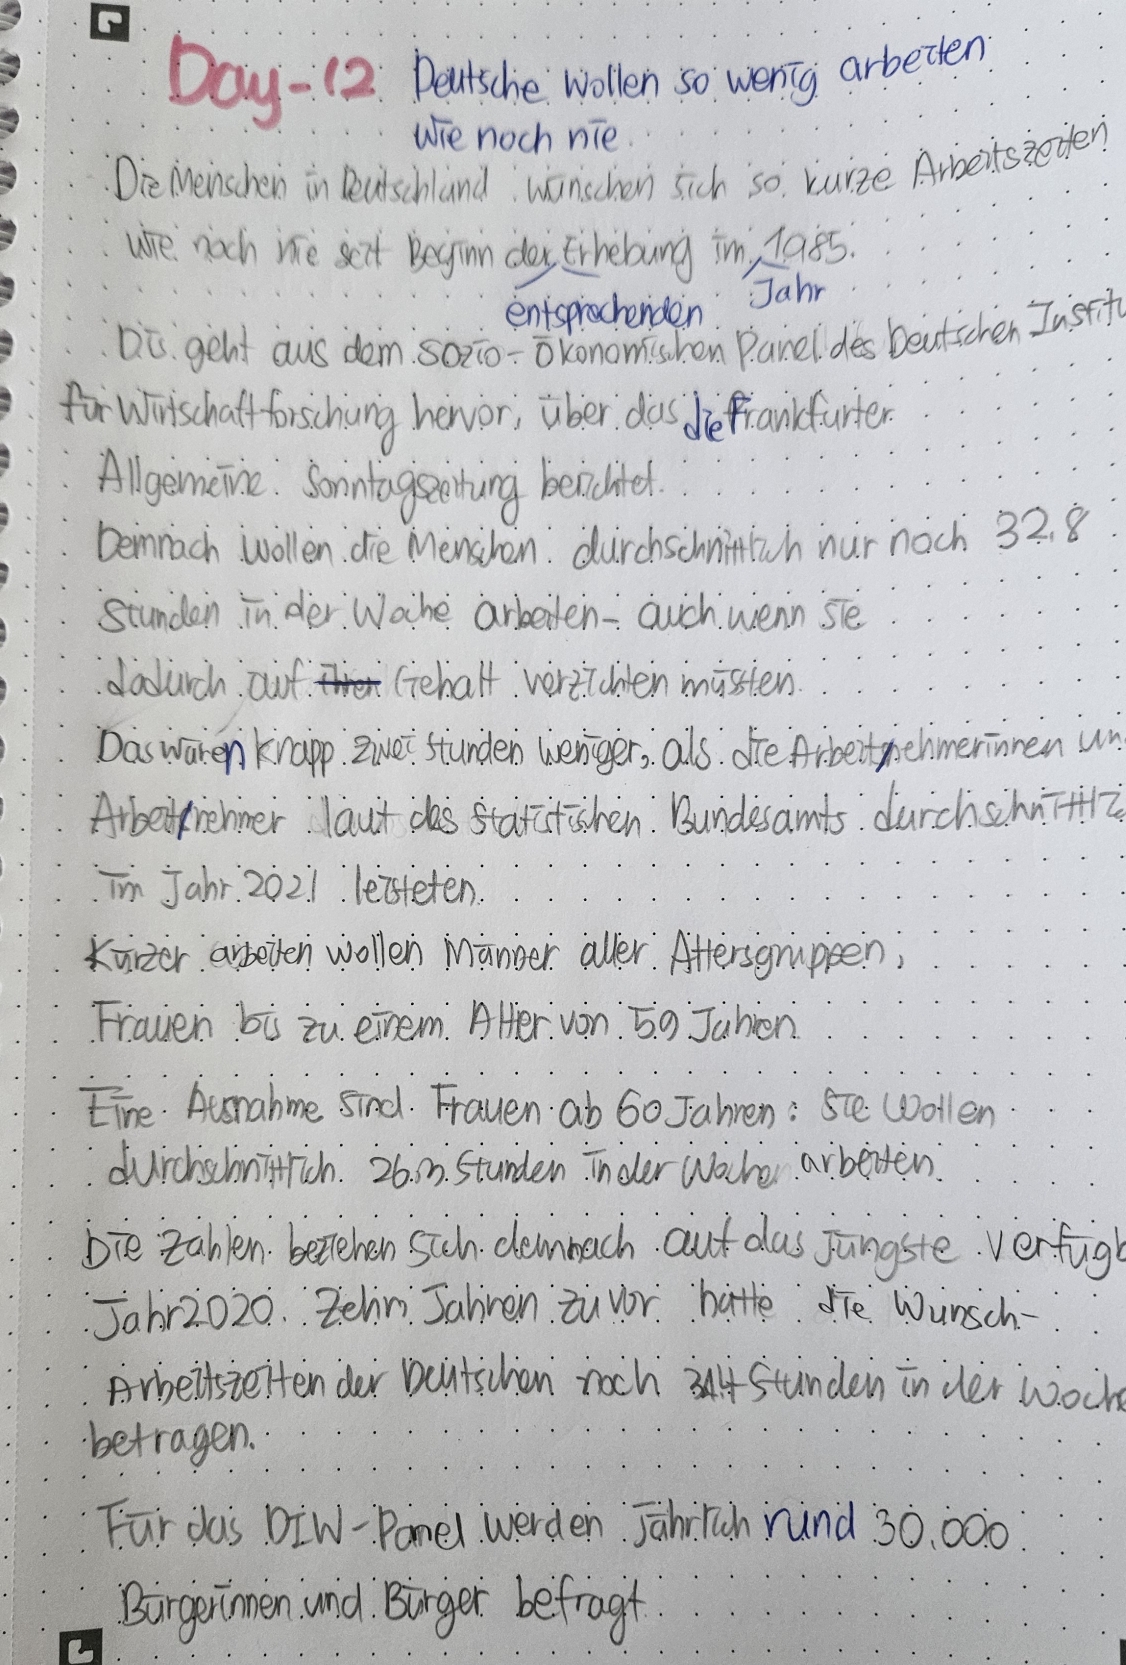 Day-12 Deutsche wollen so wenig arbeiten
wie noch nie.
Die Menschen in Deutschland wünschen sich so kurze Arbeitszeiten
wie noch nie seit Beginn der Erhebung im 1985.
entsprechenden Jahr
Dis geht aus dem sozio-ökonomischen Panel des Deutschen Institu
für Wirtschaftforschung hervor, über das die Frankfurter
Allgemeine Sonntagszeitung berichtet.
Demnach wollen die Menschen durchschnittlich nur noch 32,8
Stunden in der Woche arbeiten- auch wenn sie
dadurch auf ihren Gehalt verzichten müssten.
Das wären knapp zwei Stunden weniger, als die Arbeitnehmerinnen un
Arbeitnehmer laut des statistischen Bundesamts durchschnittli
im Jahr 2021 leisteten.
Kürzer arbeiten wollen Männer aller Altersgruppen,
Frauen bis zu einem Alter von 59 Jahren.
Eine Ausnahme sind Frauen ab 60 Jahren: sie wollen
durchschnittlich 26.3 Stunden in der Woche arbeiten.
Die Zahlen beziehen sich demnach auf das jüngste verfügb
Jahr 2020. Zehn Jahren zuvor hatte die Wunsch-
Arbeitszeiten der Deutschen noch 34,4 Stunden in der Woche
betragen.
Für das DIW-Panel werden jährlich rund 30.000
Bürgerinnen und Bürger befragt.